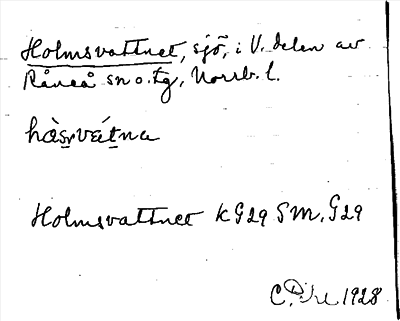 Holmsvattnet, sjö, i V. delen av
Råneå sn o. tg, Norrb. l.
Holmsvattnet K G29 SM, G29
1928